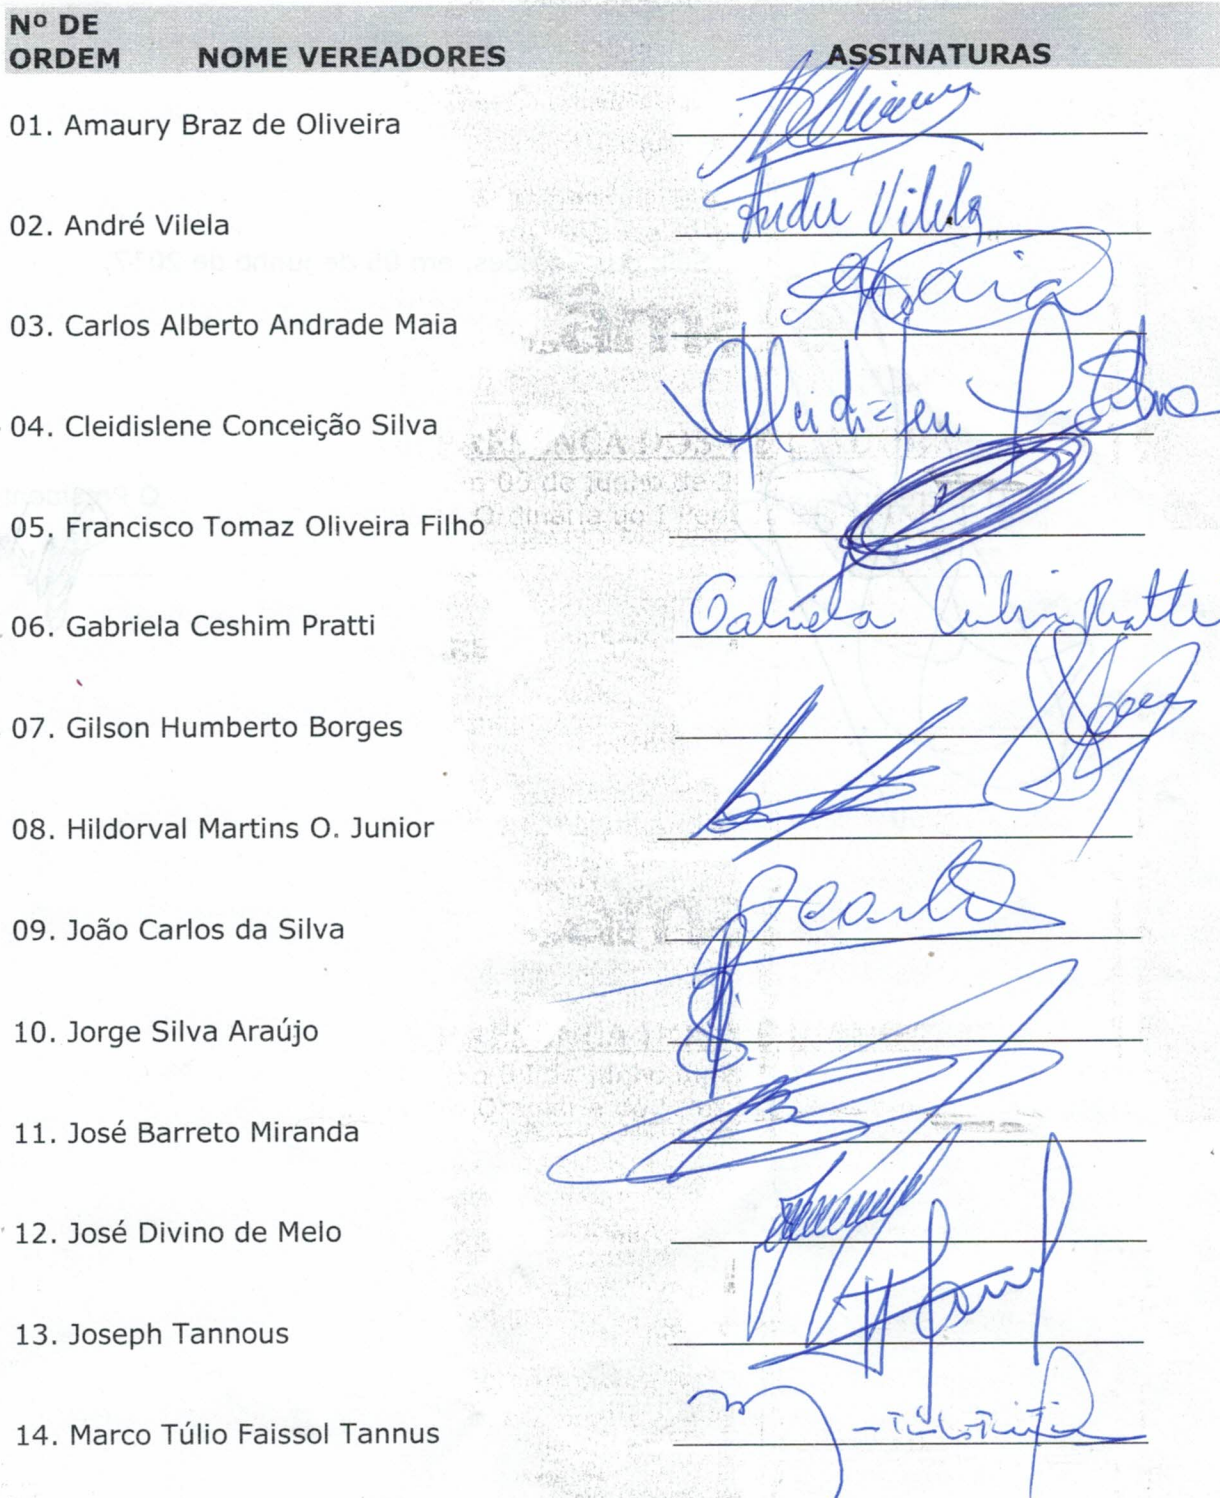 Nº DE
ORDEM NOME VEREADORES ASSINATURAS
01. Amaury Braz de Oliveira
02. André Vilela André Vilela
03. Carlos Alberto Andrade Maia
04. Cleidislene Conceição Silva
05. Francisco Tomaz Oliveira Filho
06. Gabriela Ceshim Pratti Gabriela Ceshim Pratti
07. Gilson Humberto Borges
08. Hildorval Martins O. Junior
09. João Carlos da Silva
10. Jorge Silva Araújo
11. José Barreto Miranda
12. José Divino de Melo
13. Joseph Tannous
14. Marco Túlio Faissol Tannus